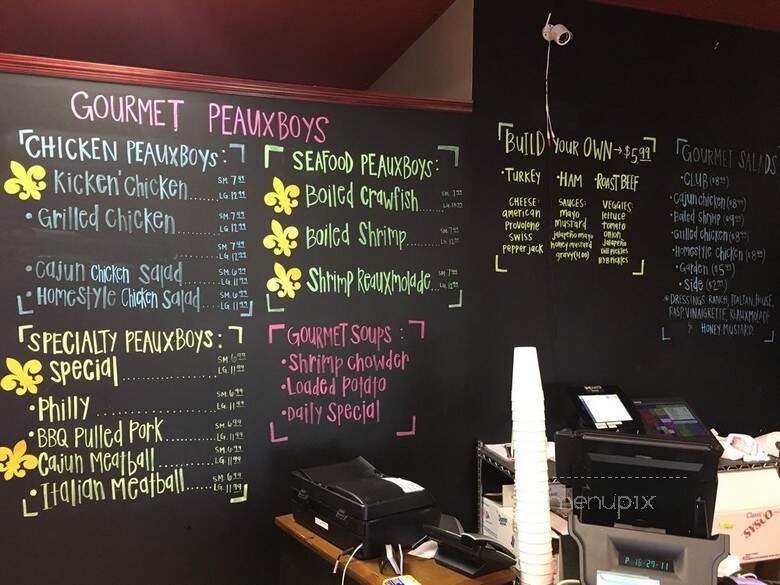 GOURMET PEAUXBOYS
CHICKEN PEAUXBOYS:
KICKEN' CHICKEN SM. 7.99
LG. 12.99
• GRILLED CHICKEN SM. 7.99
LG. 12.99
SM. 7.49
LG. 12.99
• CAJUN CHICKEN SALAD SM. 6.99
• HOMESTYLE CHICKEN SALAD SM. 6.99
SPECIALTY PEAUXBOYS:
SPECIAL SM. 6.99
LG. 11.99
• PHILLY SM. 6.99
LG. 11.99
• BBQ PULLED PORK SM. 6.99
LG. 11.99
CAJUN MEATBALL
LG. 11.99
• ITALIAN MEATBALL SM. 6.99
LG. 11.99
SEAFOOD PEAUXBOYS:
BOILED CRAWFISH
BOILED SHRIMP SM. 7.99
SHRIMP REAUXMOLADE
GOURMET SOUPS:
• SHRIMP CHOWDER
• LOADED POTATO
• DAILY SPECIAL
BUILD YOUR OWN → $5.99
• TURKEY • HAM • ROAST BEEF
CHEESE: SAUCES: VEGGIES:
AMERICAN MAYO LETTUCE
PROVOLONE MUSTARD TOMATO
SWISS JALAPEÑO MAYO ONION
PEPPER JACK HONEY MUSTARD JALAPEÑO
GRAVY($1.00) DILL PICKLES
B&B PICKLES
GOURMET SALADS
• CLUB ($8.99)
• CAJUN CHICKEN ($8.99)
• BOILED SHRIMP ($9.99)
• GRILLED CHICKEN ($8.99)
• HOMESTYLE CHICKEN ($8.99)
• GARDEN ($5.99)
• SIDE ($2.99)
* DRESSINGS: RANCH, ITALIAN, HOUSE,
RASP. VINAIGRETTE, REAUXMOLADE
HONEY MUSTARD
menupix
Classic
SYSCO
P 16-29-11